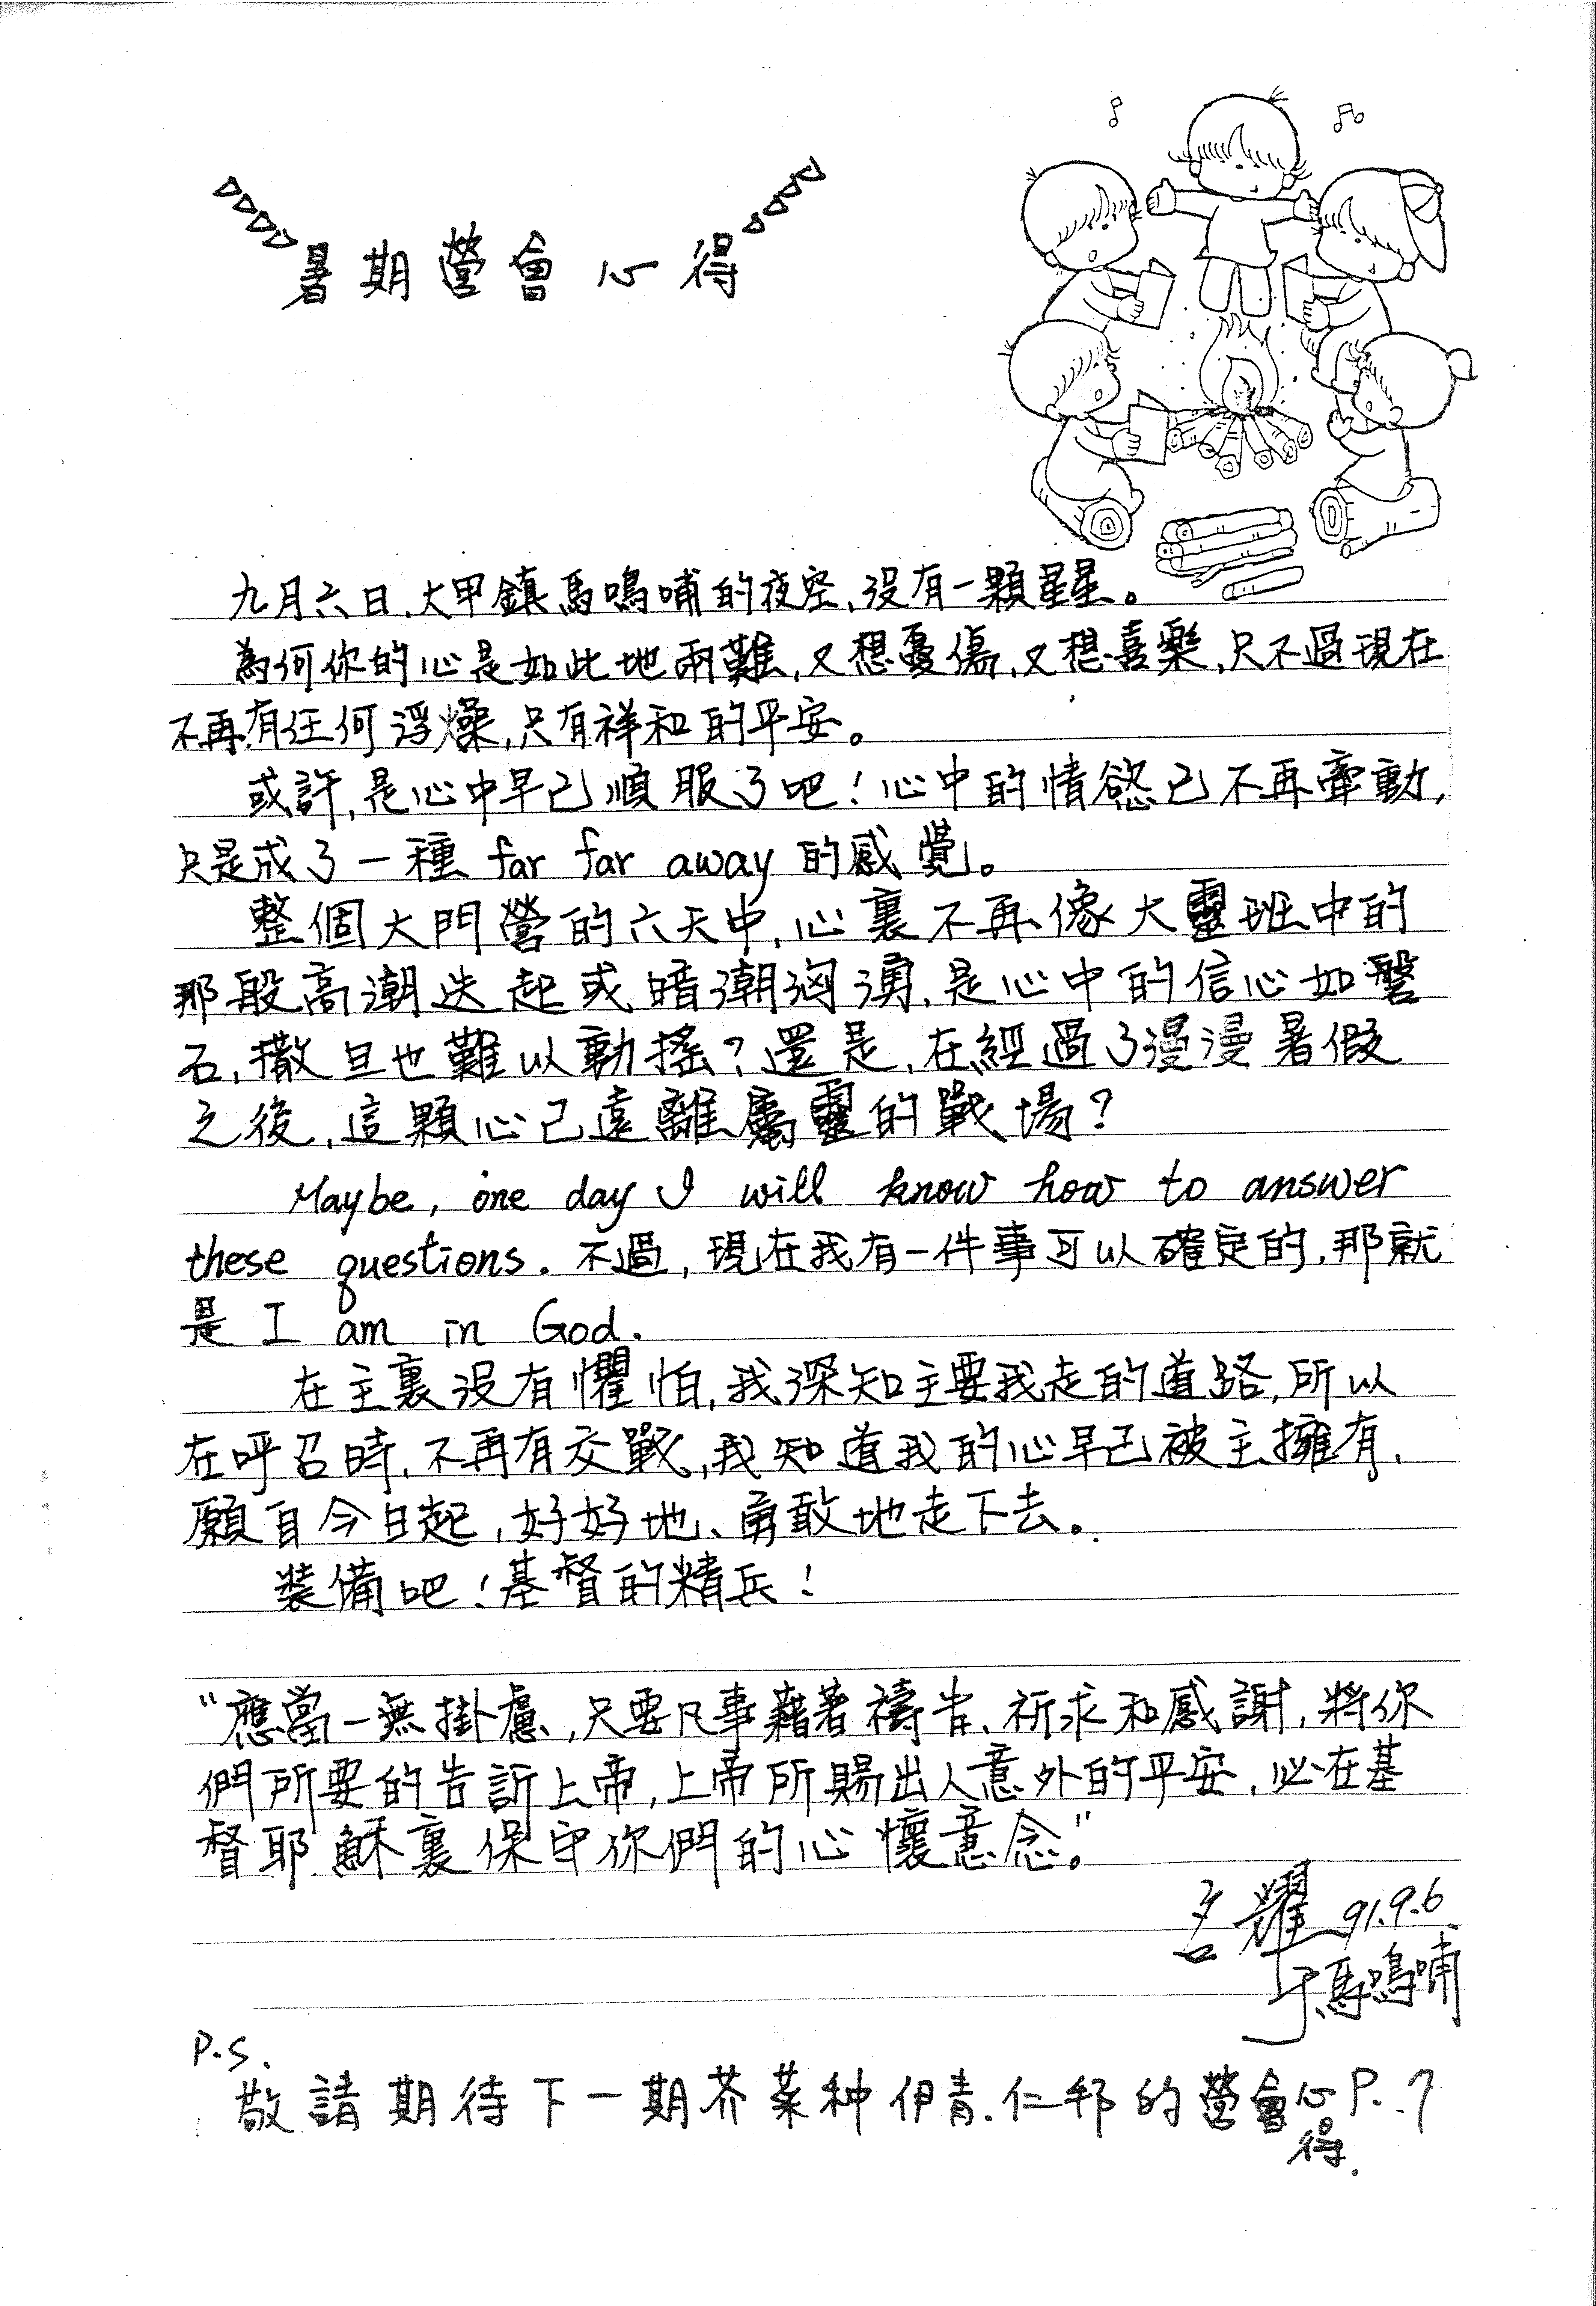 暑期營會心得
九月六日、大甲鎮馬鳴哺的夜空、沒有一顆星星。
為何你的心是如此地兩難,又想憂傷,又想喜樂,只不過現在
不再有任何浮燥,只有祥和的平安。
或許,是心中早已順服了吧!心中的情慾已不再牽動,
只是成了一種 far far away 的感覺。
整個大門營的六天中,心裏不再像大靈班中的
那般高潮迭起或暗潮洶湧,是心中的信心如磐
石,撒旦也難以動搖?還是,在經過了漫漫暑假
之後,這顆心已遠離屬靈的戰場?
Maybe, one day I will know how to answer
these questions. 不過,現在我有一件事可以確定的,那就
是 I am in God.
在主裏沒有懼怕,我深知主要我走的道路,所以
在呼召時,不再有交戰,我知道我的心早已被主擁有,
願自今日起,好好地、勇敢地走下去。
裝備吧!基督的精兵!
"應當一無掛慮,只要凡事藉著禱告、祈求和感謝,將你
們所要的告訴上帝,上帝所賜出人意外的平安,必在基
督耶穌裏保守你們的心懷意念。"
名耀 91.9.6
于馬鳴哺
P.S.
敬請期待下一期芥菜种伊青、仁邦的營會心得. P.7